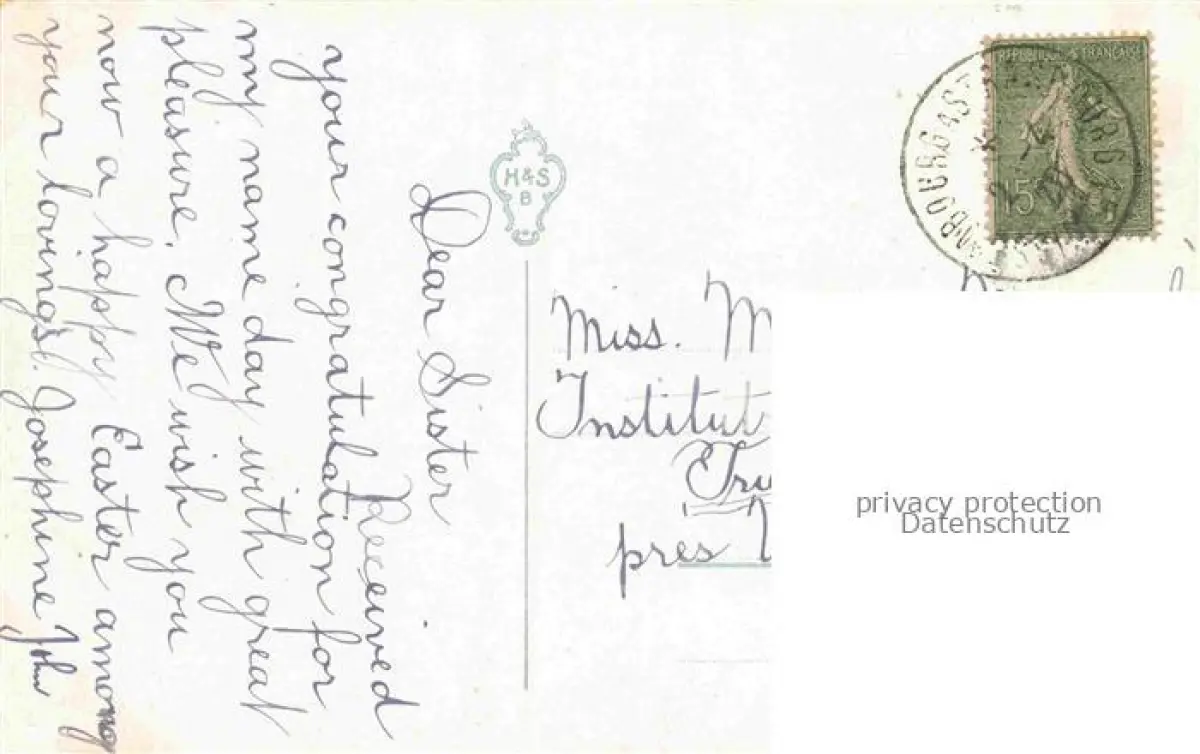 Dear Sister
Received
your congratulation for
my name day with great
pleasure. We wish you
now a happy Easter among
your lovings! Josephine John
H&S
B
REPUBLIQUE FRANÇAISE
15
Miss. M
Institut
pres
privacy protection
Datenschutz